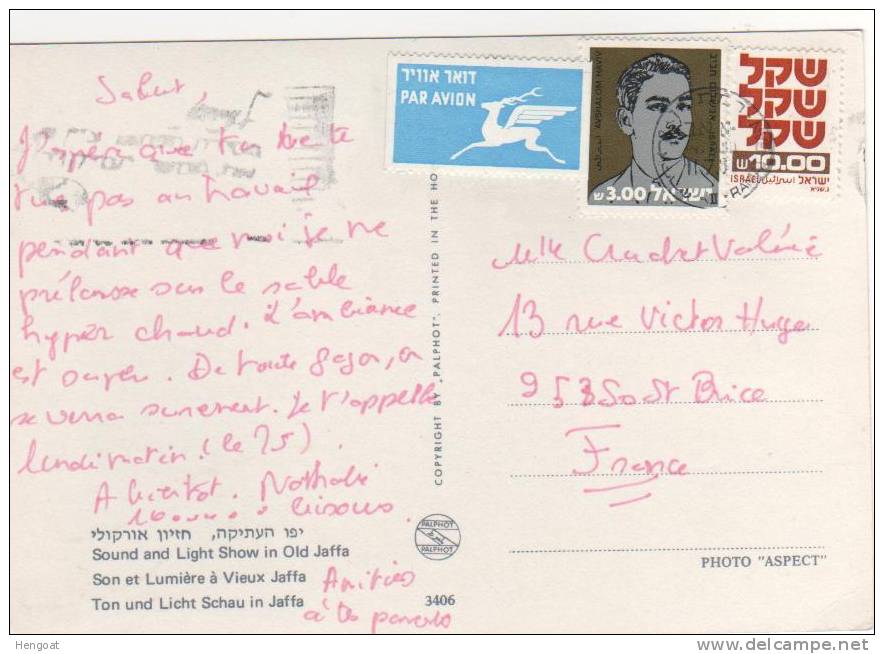 Salut,
J'espère que tu ne te
tue pas au travail
pendant que moi je me
prélasse sur le sable
hyper chaud. L'ambiance
est super. De toute façon, on
se verra surement. Je t'appelle
lundi matin (le 25).
A bientot. Nathalie
bisous.
יפו העתיקה, חזיון אורקולי
Sound and Light Show in Old Jaffa
Son et Lumière à Vieux Jaffa
Ton und Licht Schau in Jaffa
3406
Amitiés
à tes parents
COPYRIGHT BY „PALPHOT", PRINTED IN THE HO
PALPHOT
PALPHOT
דואר אוויר
PAR AVION
AVSHALOM HAVIV
ישראל 3.00
שקל
שקל
שקל
10.00
ISRAEL اسرائيل ישראל
Mlle Valérie
13 rue Victor Hugo
95350 St Brice
France
PHOTO "ASPECT"
Hengoat
www.delcampe.net